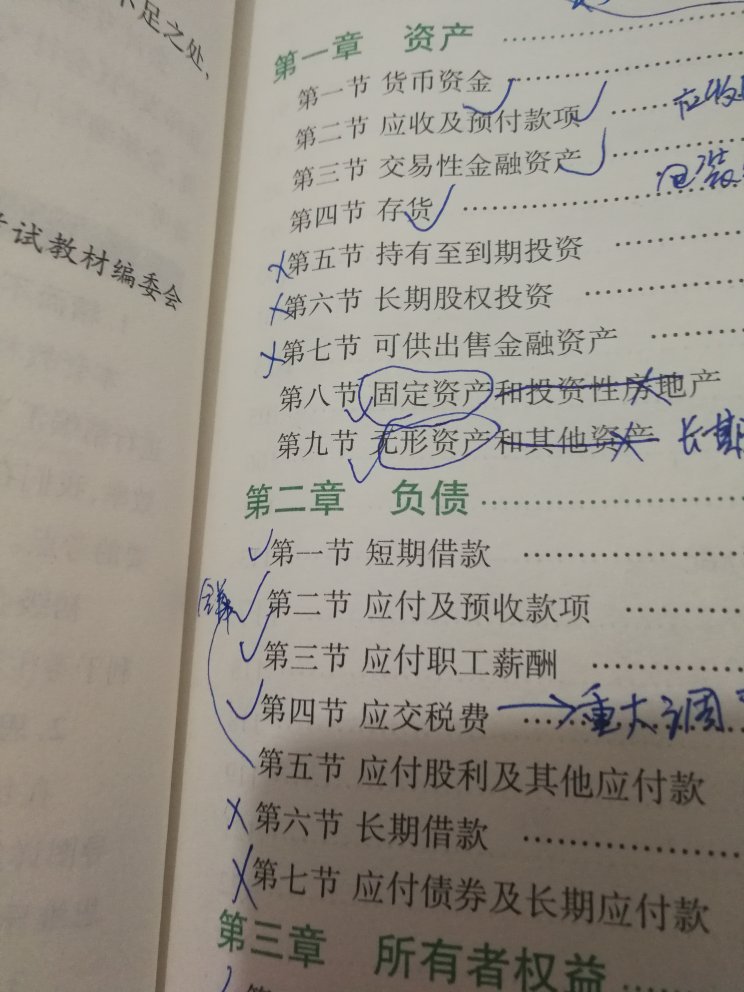 不足之处、
考试教材编委会
第一章 资产
第一节 货币资金
第二节 应收及预付款项
应收
第三节 交易性金融资产
第四节 存货
第五节 持有至到期投资
第六节 长期股权投资
第七节 可供出售金融资产
第八节 固定资产和投资性房地产
第九节 无形资产和其他资产 长期
第二章 负债
第一节 短期借款
第二节 应付及预收款项
第三节 应付职工薪酬
第四节 应交税费 → 重大调
第五节 应付股利及其他应付款
第六节 长期借款
第七节 应付债券及长期应付款
第三章 所有者权益